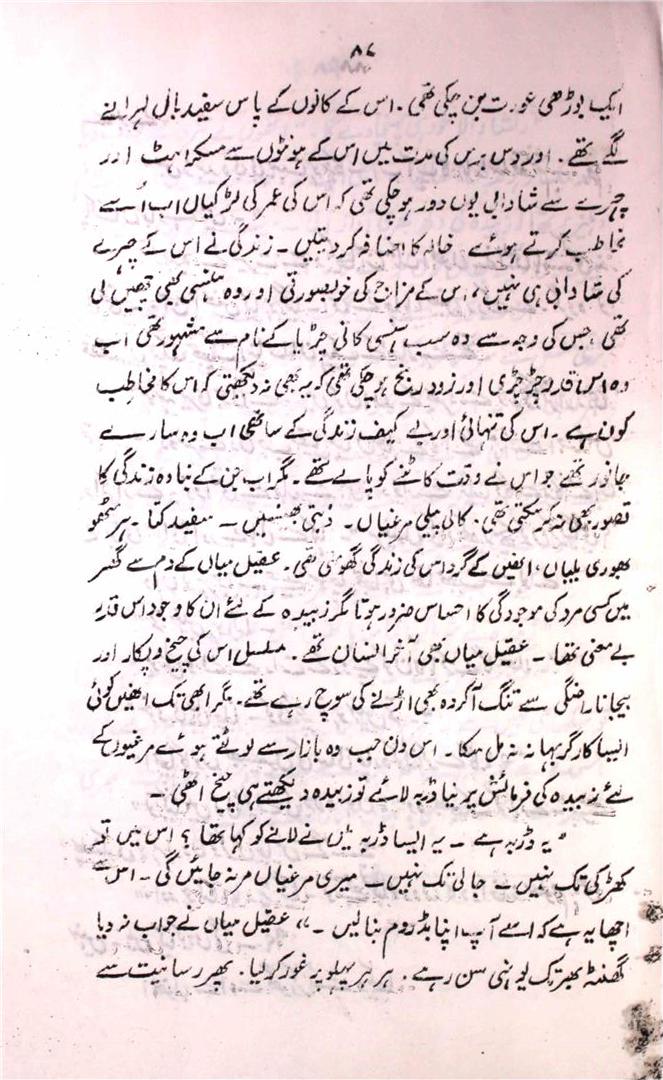 ۸۷
ایک بوڑھی عورت بن چکی تھی۔ اس کے کانوں کے پاس سفید بال لہرانے
لگے تھے۔ اور دس برس کی مدت میں اس کے ہونٹوں سے مسکراہٹ اور
چہرے سے شادابی یوں دور ہو چکی تھی کہ اس کی عمر کی لڑکیاں اب اُسے
مخاطب کرتے ہوئے خالہ کا اضافہ کر دیتیں۔ زندگی نے اس کے چہرے
کی شادابی ہی نہیں، اس کے مزاج کی خوبصورتی اور وہ ہنسی بھی چھین لی
تھی، جس کی وجہ سے وہ سب ہنسی کانی چڑیا کے نام سے مشہور تھی اب
وہ اس قدر چڑچڑی اور زود رنج ہو چکی تھی کہ یہ بھی نہ دیکھتی کہ اس کا مخاطب
کون ہے۔ اس کی تنہائی اور بے کیف زندگی کے ساتھی اب وہ سارے
جانور تھے جو اس نے وقت کاٹنے کو پالے تھے۔ مگر اب جن کے بنا وہ زندگی کا
تصور بھی نہ کر سکتی تھی۔ کالی پیلی مرغیاں۔ ذبتی بھینسیں۔ سفید کتا۔ ہر مٹھو
بھوری بلیاں، انھیں کے گرد اس کی زندگی گھومتی تھی۔ عقیل میاں کے دم سے گھر
میں کسی مرد کی موجودگی کا احساس ضرور ہوتا مگر زبیدہ کے لئے ان کا وجود اس قدر
بے معنی تھا۔ عقیل میاں بھی آخر انسان تھے۔ مسلسل اس کی چیخ و پکار اور
بیجا ناراضگی سے تنگ آکر وہ بھی اڑنے کی سوچ رہے تھے۔ مگر ابھی تک انھیں کوئی
ایسا کارگر بہانہ نہ مل سکا۔ اس دن جب وہ بازار سے لوٹتے ہوئے مرغیوں کے
لئے زبیدہ کی فرمائش پر نیا ڈربہ لائے تو زبیدہ دیکھتے ہی چیخ اٹھی۔
" یہ ڈربہ ہے۔ یہ ایسا ڈربہ میں نے لانے کو کہا تھا؟ اس میں تو
کھڑکی تک نہیں۔ جالی تک نہیں۔ میری مرغیاں مر نہ جائیں گی۔ اس سے
اچھا یہ ہے کہ اسے آپ اپنا بڈروم بنالیں۔" عقیل میاں نے جواب نہ دیا
گھنٹہ بھر تک یونہی سن رہے۔ ہر ہر پہلو پر غور کر لیا۔ پھر رسانیت سے